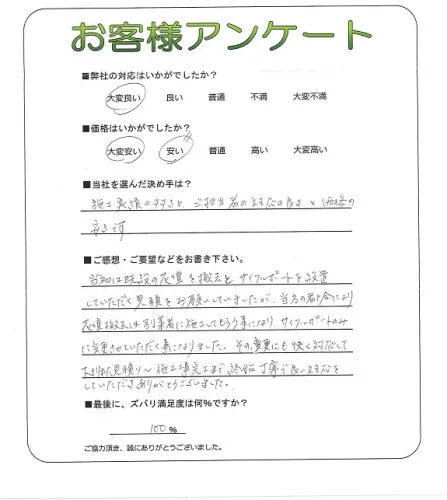 お客様アンケート
■弊社の対応はいかがでしたか?
大変良い 良い 普通 不満 大変不満
■価格はいかがでしたか?
大変安い 安い 普通 高い 大変高い
■当社を選んだ決め手は?
施工実績の多さと、ご担当者の対応の良さと価格の
安さ
■ご感想・ご要望などをお書き下さい。
当初は既設の花壇を撤去し、サイクルポートを設置
していただく見積をお願いしていましたが、当方の都合により
花壇撤去は別業者に施工してもらう事になり、サイクルポートのみ
に変更させていただく事になりました。その変更にも快く対応して
下さり見積り〜施工完了まで終始丁寧で良い対応を
していただきありがとうございました。
■最後に、ズバリ満足度は何%ですか?
100%
ご協力頂き、誠にありがとうございました。